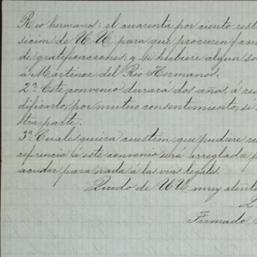 Rio hermanos: el cuarenta por ciento rest
sicion de UU. para que procuren facu
de gratificaciones, y si hubiere algun so
á Martinez del Rio Hermanos.
2ª Este convenio durará dos años, á
difiranlo, por mutuo consentimiento, se
tra parte.
3ª Cualesquiera cuestion que pudiere
referencia á este convenio será arreglada p
acudir para nada á las vias legales.
Quedo de UU. muy atent
Firmado